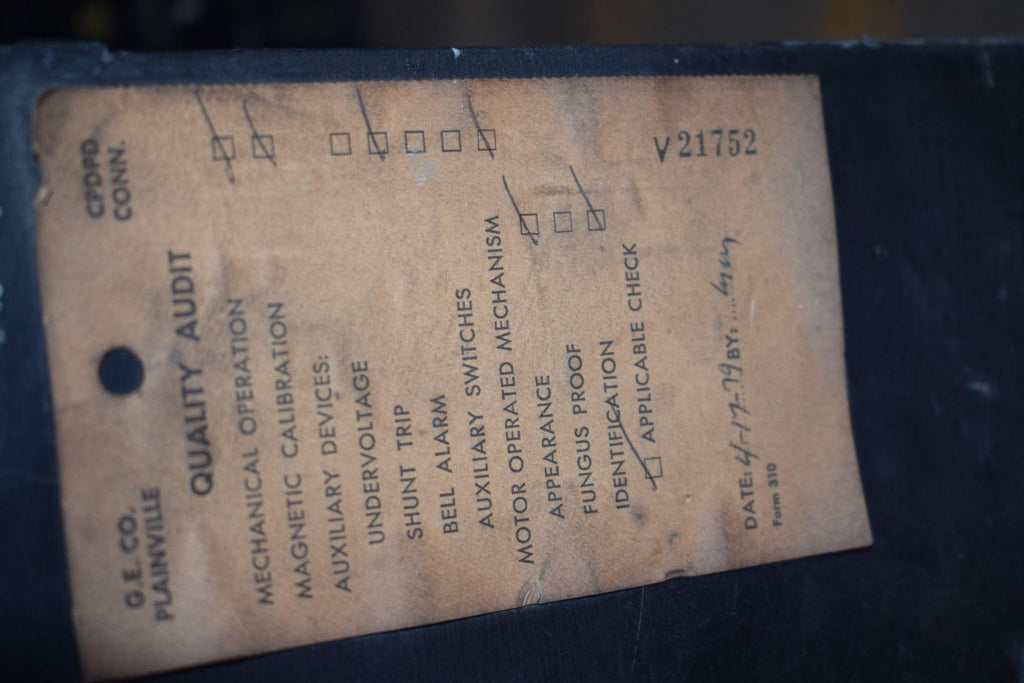 G.E. CO. CPDPD
PLAINVILLE CONN.
QUALITY AUDIT
MECHANICAL OPERATION
MAGNETIC CALIBRATION
AUXILIARY DEVICES:
UNDERVOLTAGE
SHUNT TRIP
BELL ALARM
AUXILIARY SWITCHES
MOTOR OPERATED MECHANISM
APPEARANCE
FUNGUS PROOF
IDENTIFICATION
APPLICABLE CHECK
V 21752
DATE: 4-17-79 BY:
Form 310